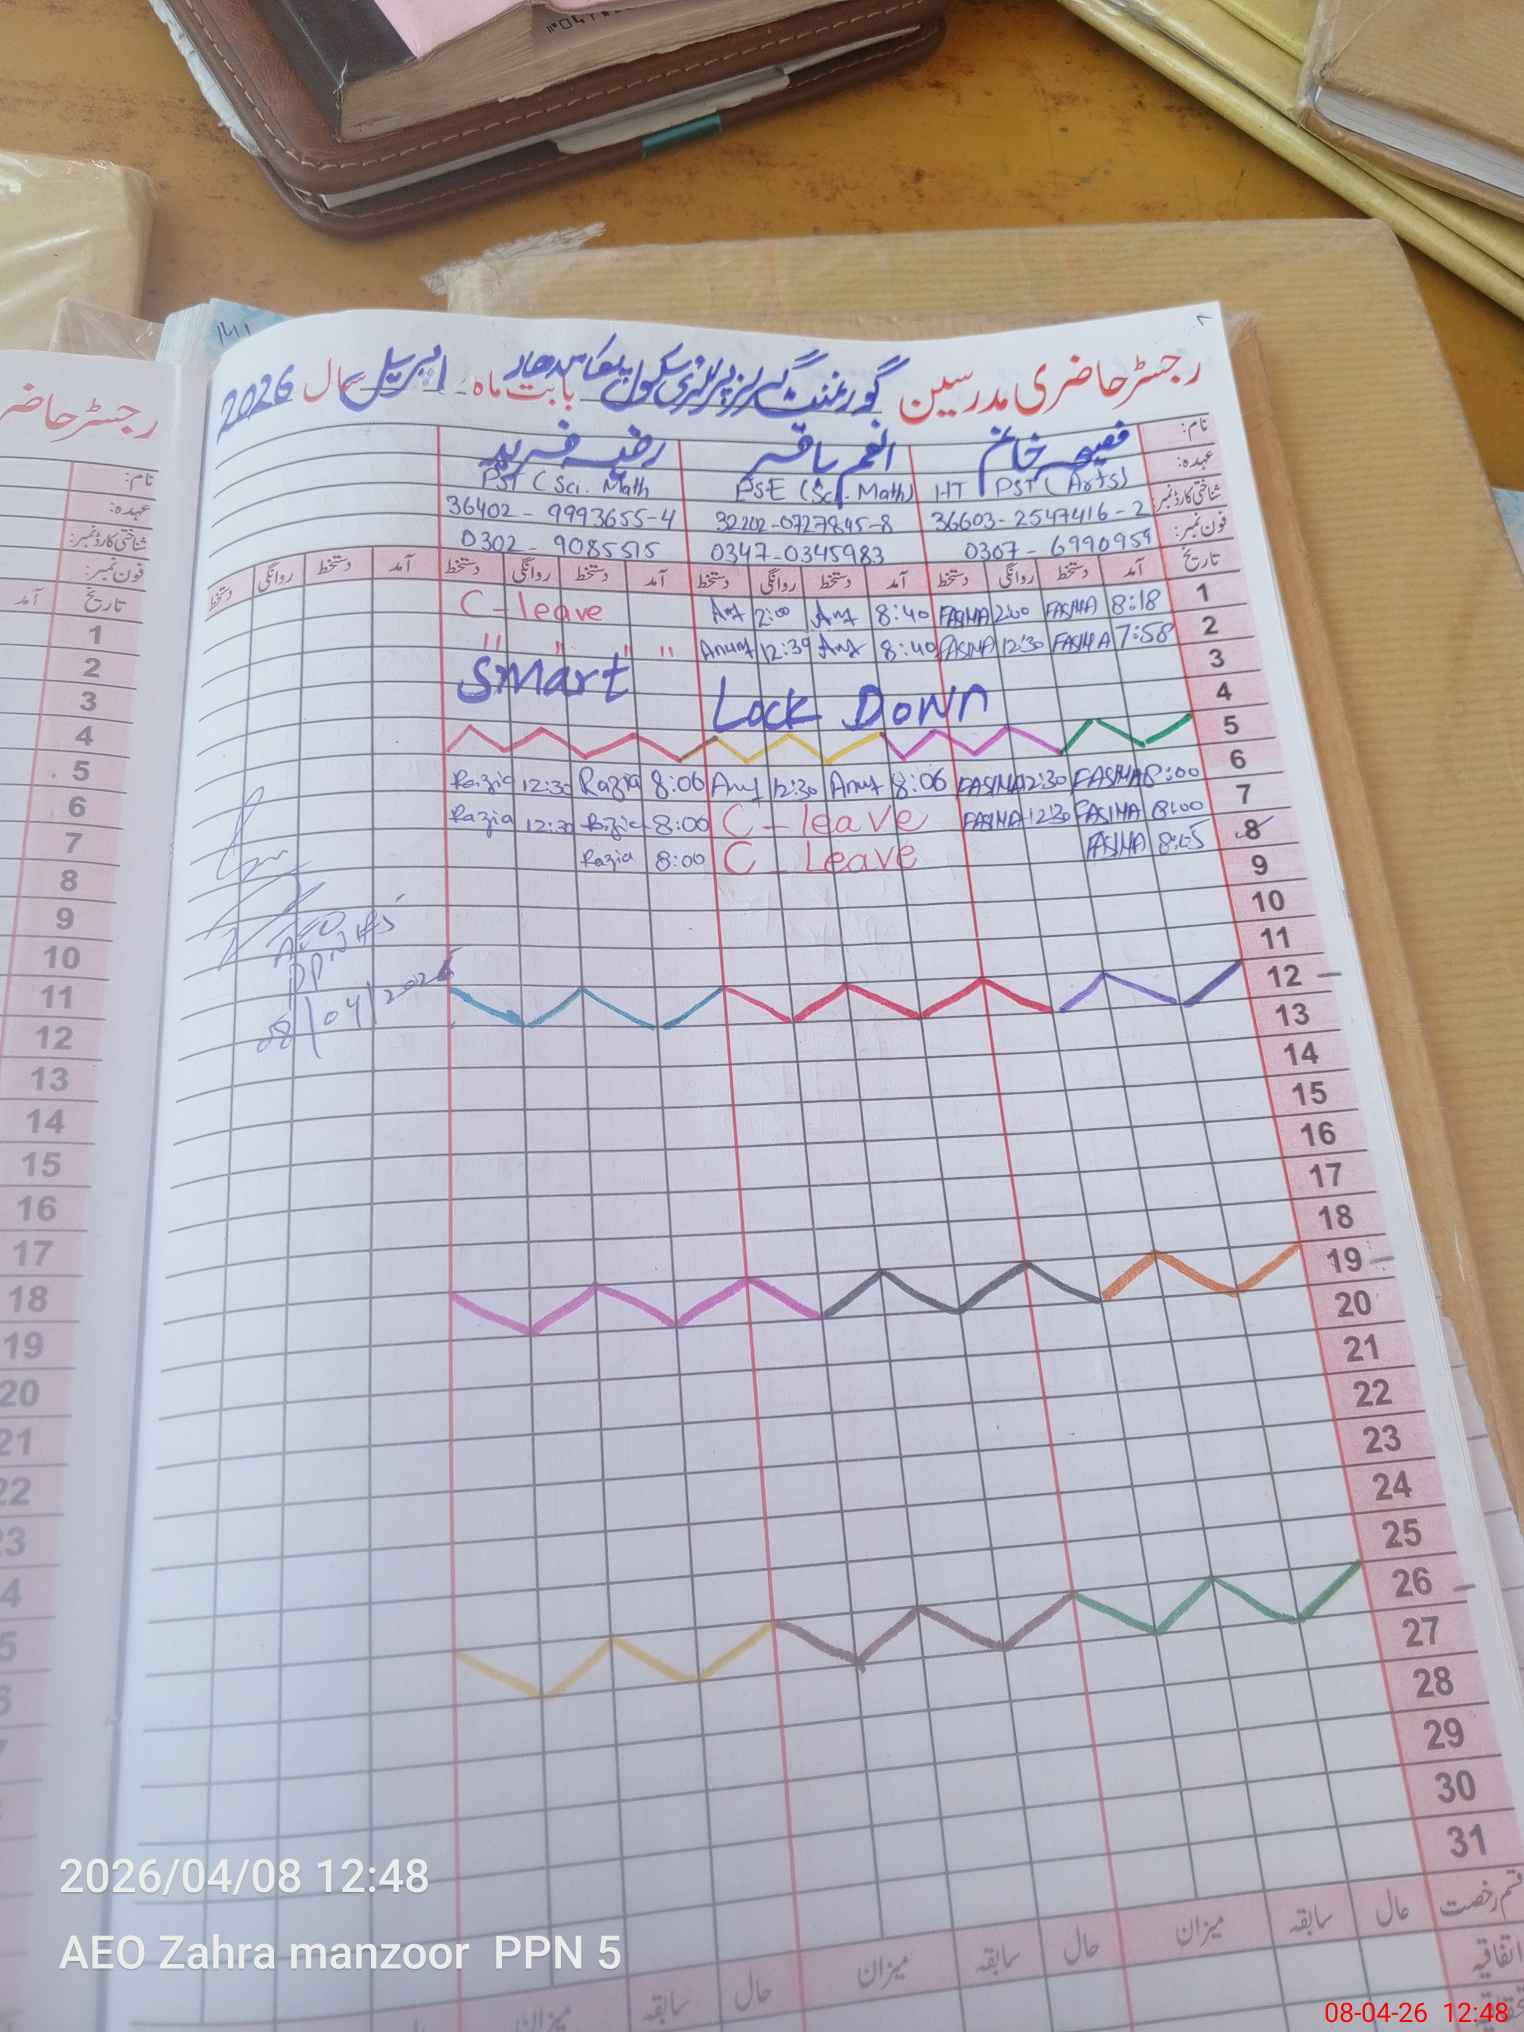 رجسٹر حاضری مدرسین گورنمنٹ گرلز پرائمری سکول بابت ماہ اپریل سال 2026
نام: فصیحہ خانم انعم باقر رضیہ فرید
عہدہ: HT PST (Arts) PSE (Sci. Math) PST (Sci. Math
شناختی کارڈ نمبر: 36603-2547416-2 32202-0727845-8 36402-9993655-4
فون نمبر: 0307-6990959 0347-0345983 0302-9085515
تاریخ آمد دستخط روانگی دستخط آمد دستخط روانگی دستخط آمد دستخط روانگی دستخط آمد دستخط روانگی دستخط
1 8:18 FASIHA 2:00 FASIHA 8:40 Anf 2:00 Anf C-leave
2 7:58 FASIHA 12:30 FASIHA 8:40 Anf 12:39 Anum " " " "
3 Smart
4 Lock Down
5
6 8:00 FASIHA 12:30 FASIHA 8:06 Anumf 12:30 Anf 8:06 Razia 12:30 Razia
7 8:00 FASIHA 12:30 FASIHA C-leave 8:00 Razia 12:30 Razia
8 8:05 FASIHA C-Leave 8:00 Razia
9
10
11
12
13
14
15
16
17
18
19
20
21
22
23
24
25
26
27
28
29
30
31
AEO
PPN #5
08/04/2026
قسم رخصت حال سابقہ میزان حال سابقہ میزان حال سابقہ میزان
اتفاقیہ
رجسٹر حاضر
نام:
عہدہ:
شناختی کارڈ نمبر:
فون نمبر:
تاریخ آمد
1
2
3
4
5
6
7
8
9
10
11
12
13
14
15
16
17
18
19
20
21
22
2026/04/08 12:48
AEO Zahra manzoor PPN 5
08-04-26 12:48